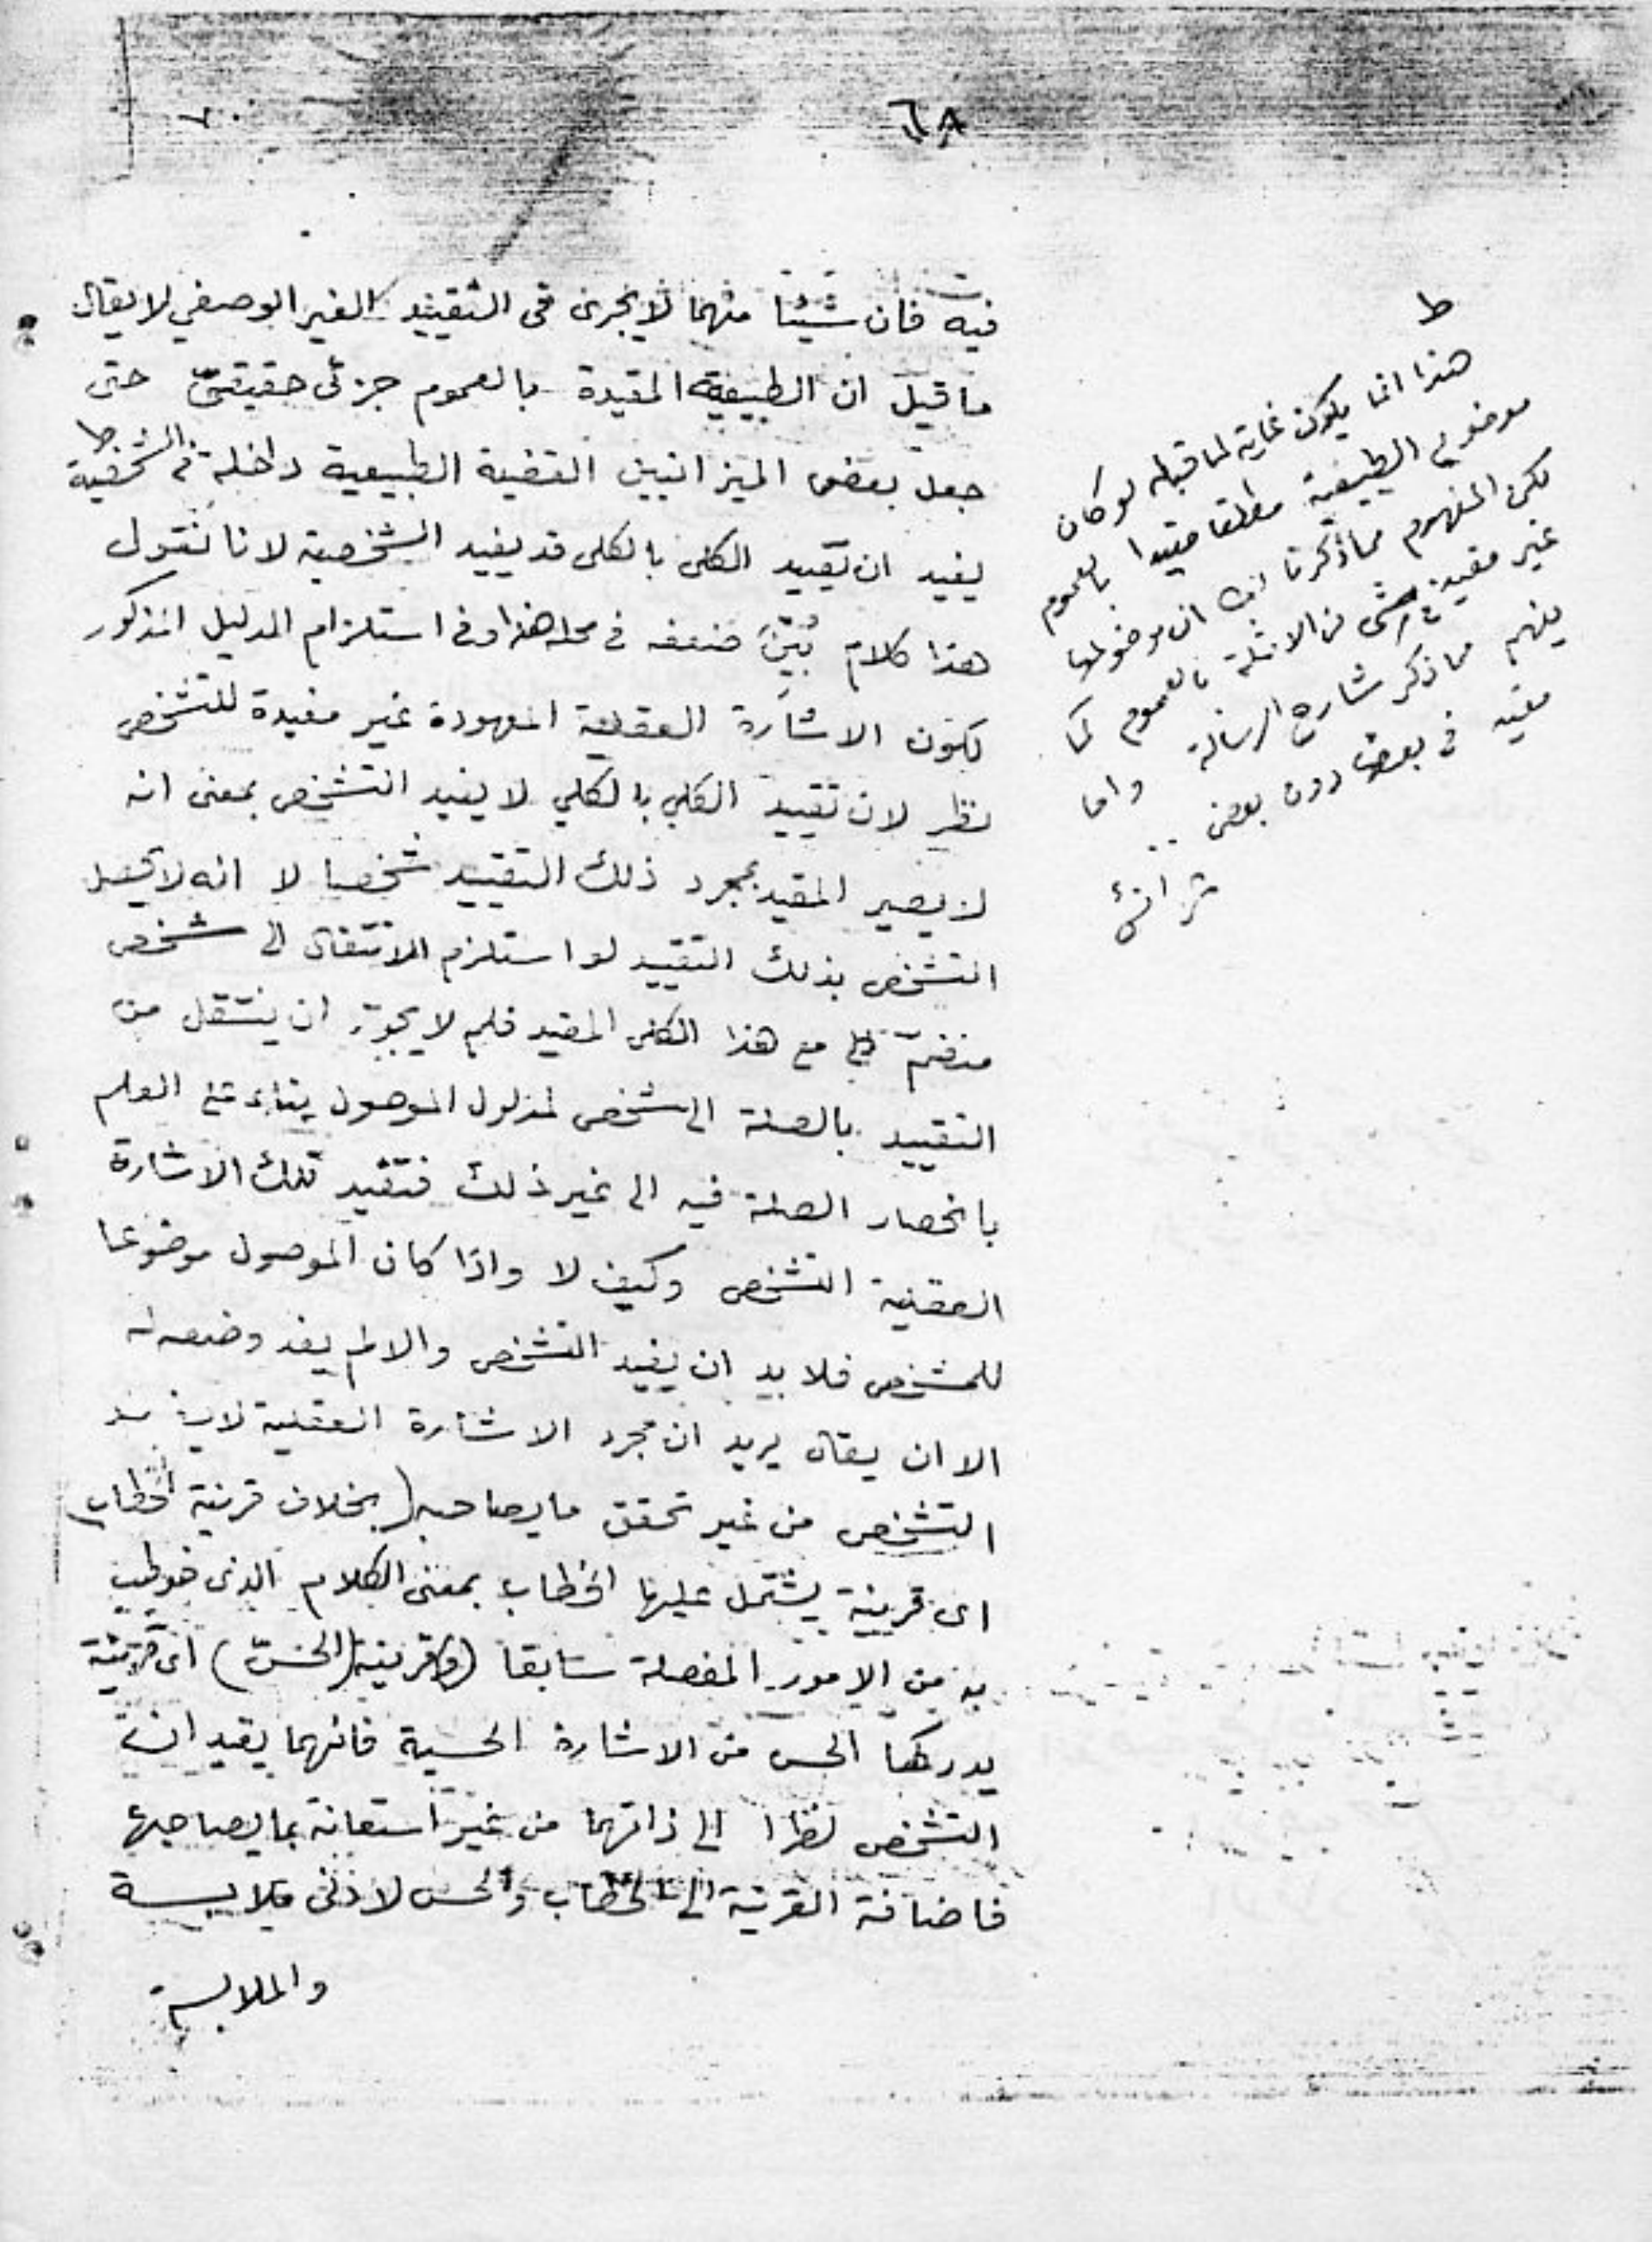 ٦٨
فيه فان شيئا منهما لا يجرى فى التقييد الغير الوصفي لا يقال
ما قيل ان الطبيعة المقيدة بالعموم جزئى حقيقىّ حتى
جعل بعض الميزانيين القضية الطبيعية داخلة فى الشخصية ط
يفيد ان تقييد الكلى بالكلى قد يفيد الشخصية لانا نقول
هذا كلام بُيّنَ ضعفه فى محله هذا وفى استلزام الدليل المذكور
لكون الاشارة العقلية المعهودة غير مفيدة للتشخص
نظر لان تقييد الكلي بالكلي لا يفيد التشخص بمعنى انه
لا يصير المقيد بمجرد ذلك التقييد شخصا لا انه لا يحصل
التشخص بذلك التقييد لو استلزم الانتقال الى شخص
منضمّ مع هذا الكلى المقيد فلم لا يجوز ان ينتقل من
التقييد بالصلة الى شخص لمدلول الموصول بناء على العلم
بانحصار الصلة فيه الى غير ذلك فتفيد تلك الاشارة
العقلية التشخص وكيف لا واذا كان الموصول موضوعا
للمشخص فلا بد ان يفيد التشخص والا لم يفد وضعه له
الا ان يقال يريد ان مجرد الاشارة العقلية لا يفيد
التشخص من غير تحقق ما يصاحبه (بخلاف قرينة الخطاب)
اى قرينة يشتمل عليها الخطاب بمعنى الكلام الذى خوطب
به من الامور المفصلة سابقا (و) قرينة (الحسّ) اى قرينة
يدركها الحس من الاشارة الحسية فانهما يفيدان
التشخص نظرا الى ذاتهما من غير استعانة بما يصاحبها
فاضافة القرينة الى الخطاب والحس لادنى ملابسة
والملابسة
ط
هذا انما يكون غاية لما قبله لو كان
موضوع الطبيعة مطلقا مقيدا بالعموم
لكن المفهوم مما ذكرنا ان موضوعها
غير مقيد فى شى من الامثلة بالعموم كما
يفهم مما ذكر شارح الرسالة واما
مقيد فى بعض دون بعض